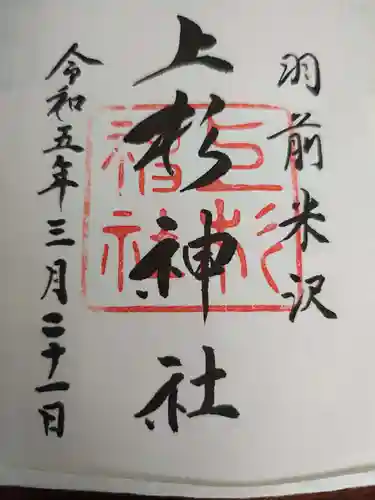 羽前米沢
上杉神社
令和五年三月二十一日